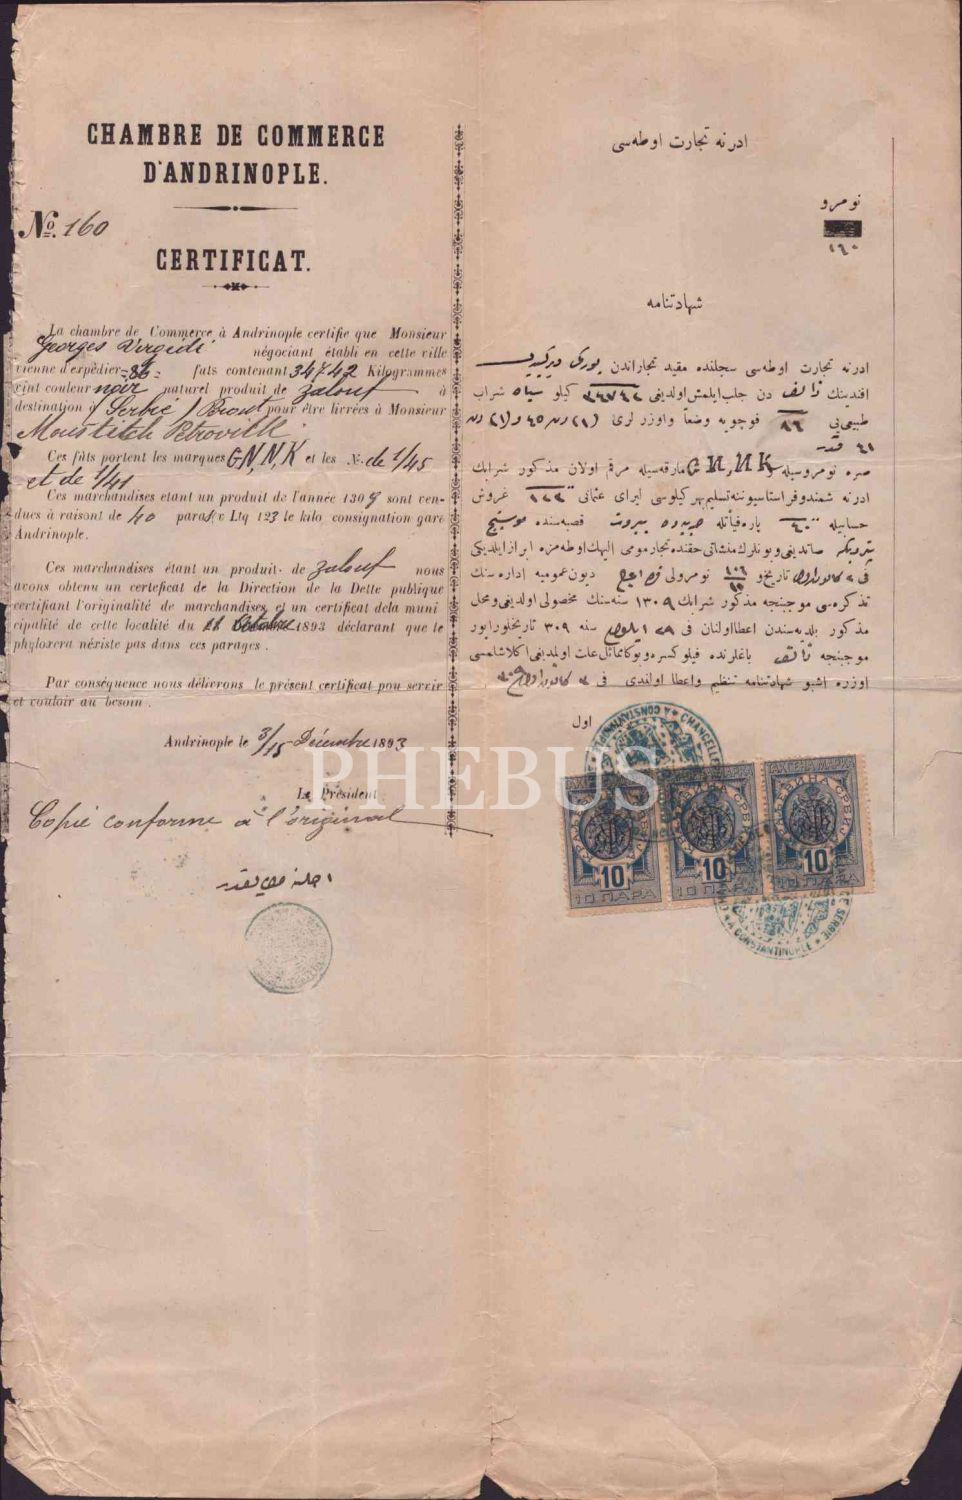 CHAMBRE DE COMMERCE
D'ANDRINOPLE.
No. 160
CERTIFICAT.
La chambre de Commerce à Andrinople certifie que Monsieur
Georges négociant établi en cette ville
vienne d'expédier =86= futs contenant 34742 Kilogrammes
vint couleur noir naturel produit de Zalouf à
destination d Serbie pour être livrées à Monsieur
Ces fûts portent les marques G.N, N, K et les No de 1/45
et de 1/41
Ces marchandises etant un produit de l'année 1309 sont ven-
dues à raisont de 40 paras Ltq 123 le kilo consignation gare
Andrinople.
Ces marchandises étant un produit de Zalouf nous
avons obtenu un certeficat de la Direction de la Dette publique
certifiant l'originalité de marchandises et un certificat dela muni
cipalité de cette localité du Octobre 1893 déclarant que le
phyloxera néxiste pas dans ces parages.
Par conséquence nous délivrons le présent certificat pou servir
et vouloir au besoin.
Andrinople le 3/15 Décembre 1893
Le Président
Copie conforme à l'original
ادرنه تجارت اوطه‌سی
نومرو
١٦٠
شهادتنامه
ادرنه تجارت اوطه‌سی سجلنده مقید تجاراندن
افندینك دن جلب ایلمش اولدیغی ٣٤٧٤٢ کیلو سیاه شراب
طبیعی‌یی ٨٦ فوچویه وضعاً واوزرلری
صره نومروسیله G И, И К مارقه‌سیله مرقم اولان مذکور شرابك
ادرنه شمندوفر استاسیوننه تسلیم بهر کیلوسی لیرای عثمانی ١٢٣ غروش
حسابیله ٤٠ پاره فیأتله قصبه‌سنده
صاتدیغی وبونلرك منشائی حقنده تجار مومی الیهك اوطه‌مزه ابراز ایلدیکی
تاریخ و نومرولی دیون عمومیه اداره‌سنك
تذکره‌سی موجبنجه مذکور شرابك ١٣٠٩ سنه‌سنك محصولی اولدیغی ومحل
مذکور بلدیه‌سندن اعطا اولنان فی ٢٩ ایلول سنه ٣٠٩ تاریخلو راپور
موجبنجه باغلرنده فیلوکسره وبوکا مماثل علت اولمدیغی اکلاشلمسی
اوزره اشبو شهادتنامه تنظیم واعطا اولندی فی
اول
КРАЉЕВИНА СРБИЈА
10
10 ПАРА
КРАЉЕВИНА СРБИЈА
10
10 ПАРА
ТАКСЕНА МАРКА
КРАЉЕВИНА СРБИЈА
10
10 ПАРА
A CONSTANTINOPLE
DE SERBIE
PHEBUS